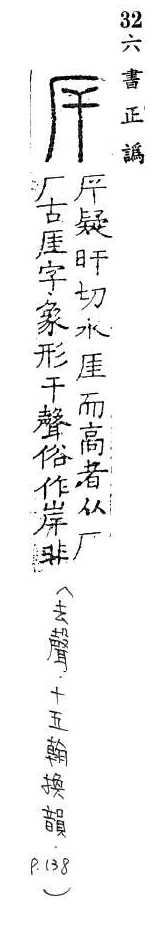 32六書正譌
厈
厈疑旰切水厓而高者从厂
厂古厓字象形干聲俗作岸非
(去聲.十五翰換韻.P.138)